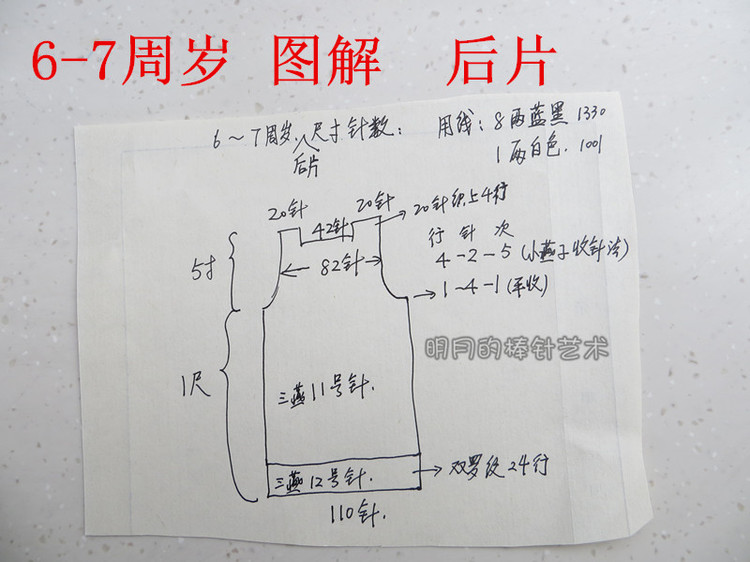 6-7周岁 图解 后片
6～7周岁，尺寸针数： 用线：8两蓝黑 1330
后片 1两白色．1001
20针 20针 20针织上4行
42针
行 针 次
5寸 82针 4-2-5（小燕子收针法）
1-4-1（平收）
明月的棒针艺术
1尺
三燕11号针．
三燕12号针． 双罗纹24行
110针．